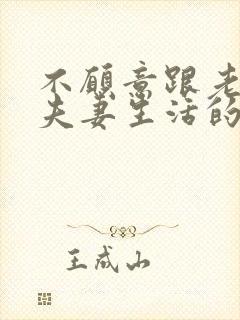 不愿意跟老
夫妻生活的
王成山